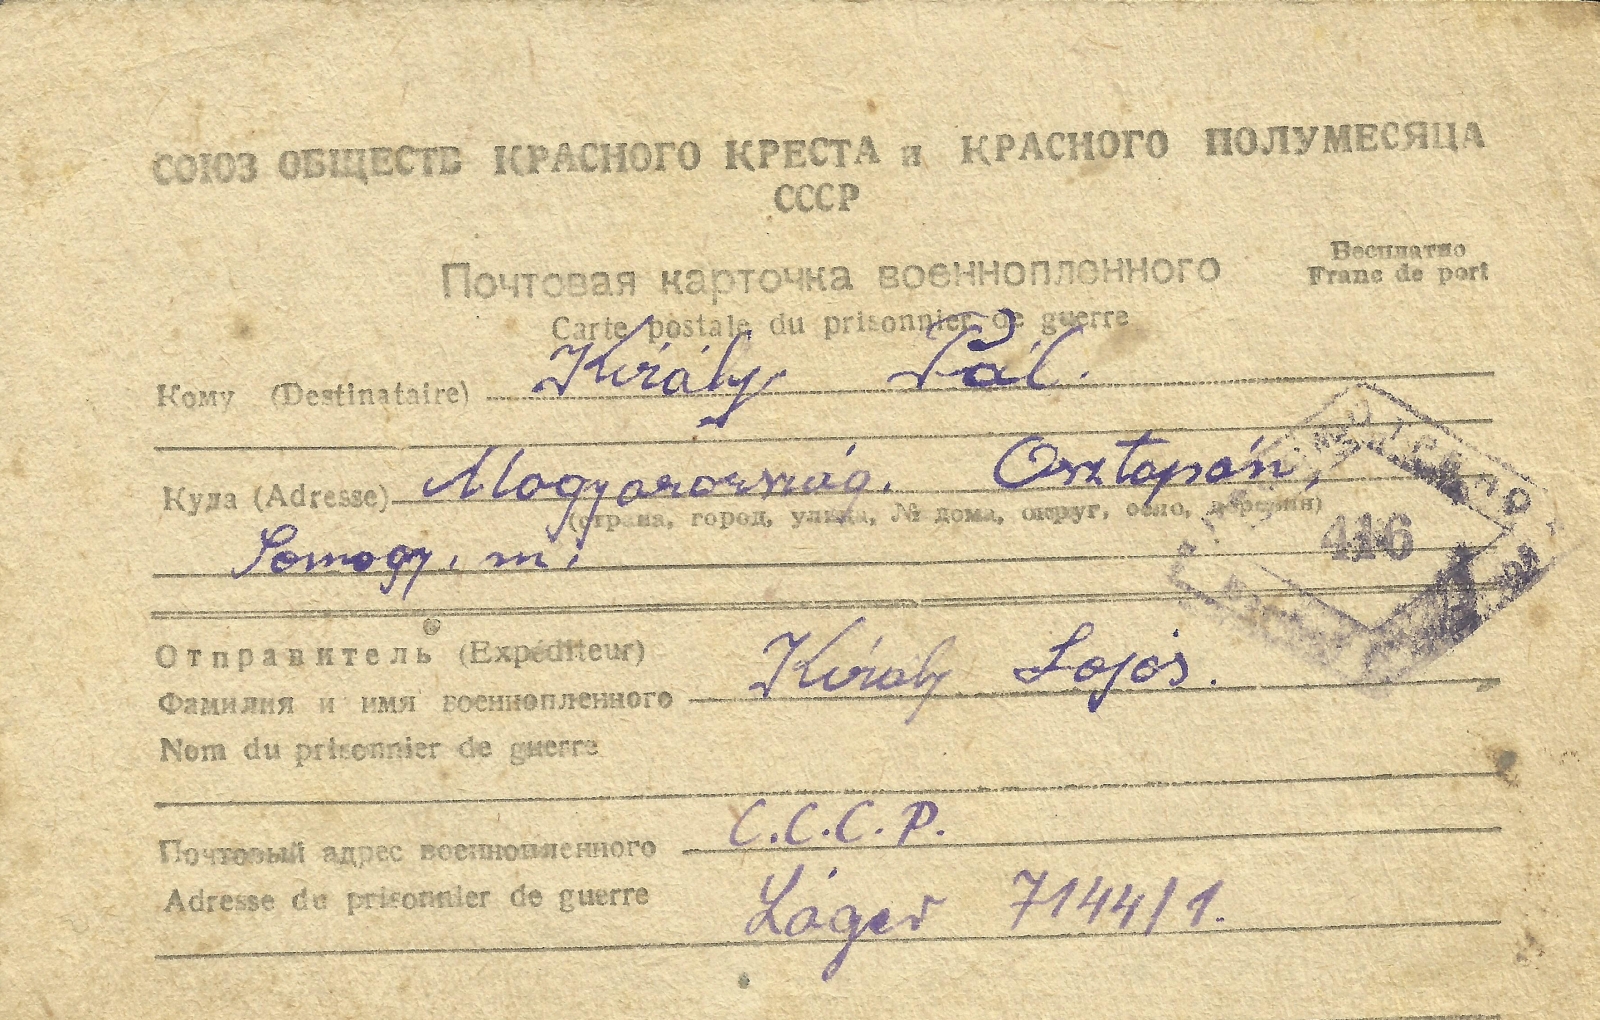 СОЮЗ ОБЩЕСТВ КРАСНОГО КРЕСТА и КРАСНОГО ПОЛУМЕСЯЦА
СССР
Бесплатно
Franc de port
Почтовая карточка военнопленного
Carte postale du prisonnier de guerre
Кому (Destinataire) Király Pál.
Куда (Adresse) Magyarország. Osztopán,
(страна, город, улица, № дома, округ, село, деревня)
Somogy. m.
416
Отправитель (Expéditeur)
Фамилия и имя военнопленного Király Lajos.
Nom du prisonnier de guerre
Почтовый адрес военнопленного С.С.С.Р.
Adresse du prisonnier de guerre Láger 7144/1.